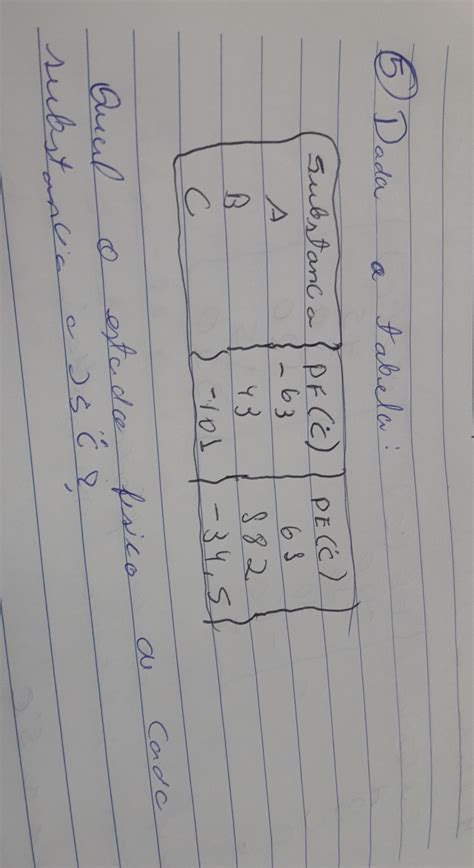 5 Dada a tabela:
Substanca PF(°C) PE(°C)
A -63 68
B 43 882
C -101 -34,5
Qual o estado fisico de cada
substancia a 25°C?